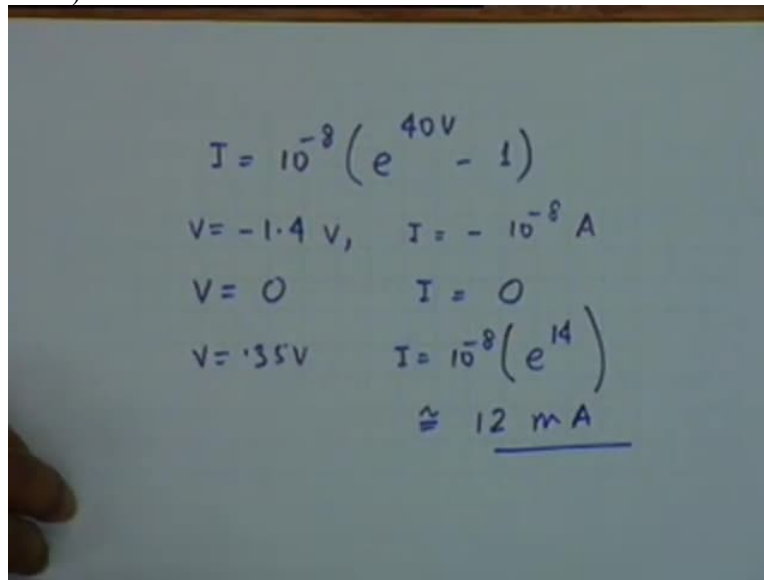 I = 10⁻⁸ (e⁴⁰ⱽ - 1)
V = -1.4 V, I = - 10⁻⁸ A
V = 0 I = 0
V = .35V I = 10⁻⁸ (e¹⁴)
≅ 12 mA